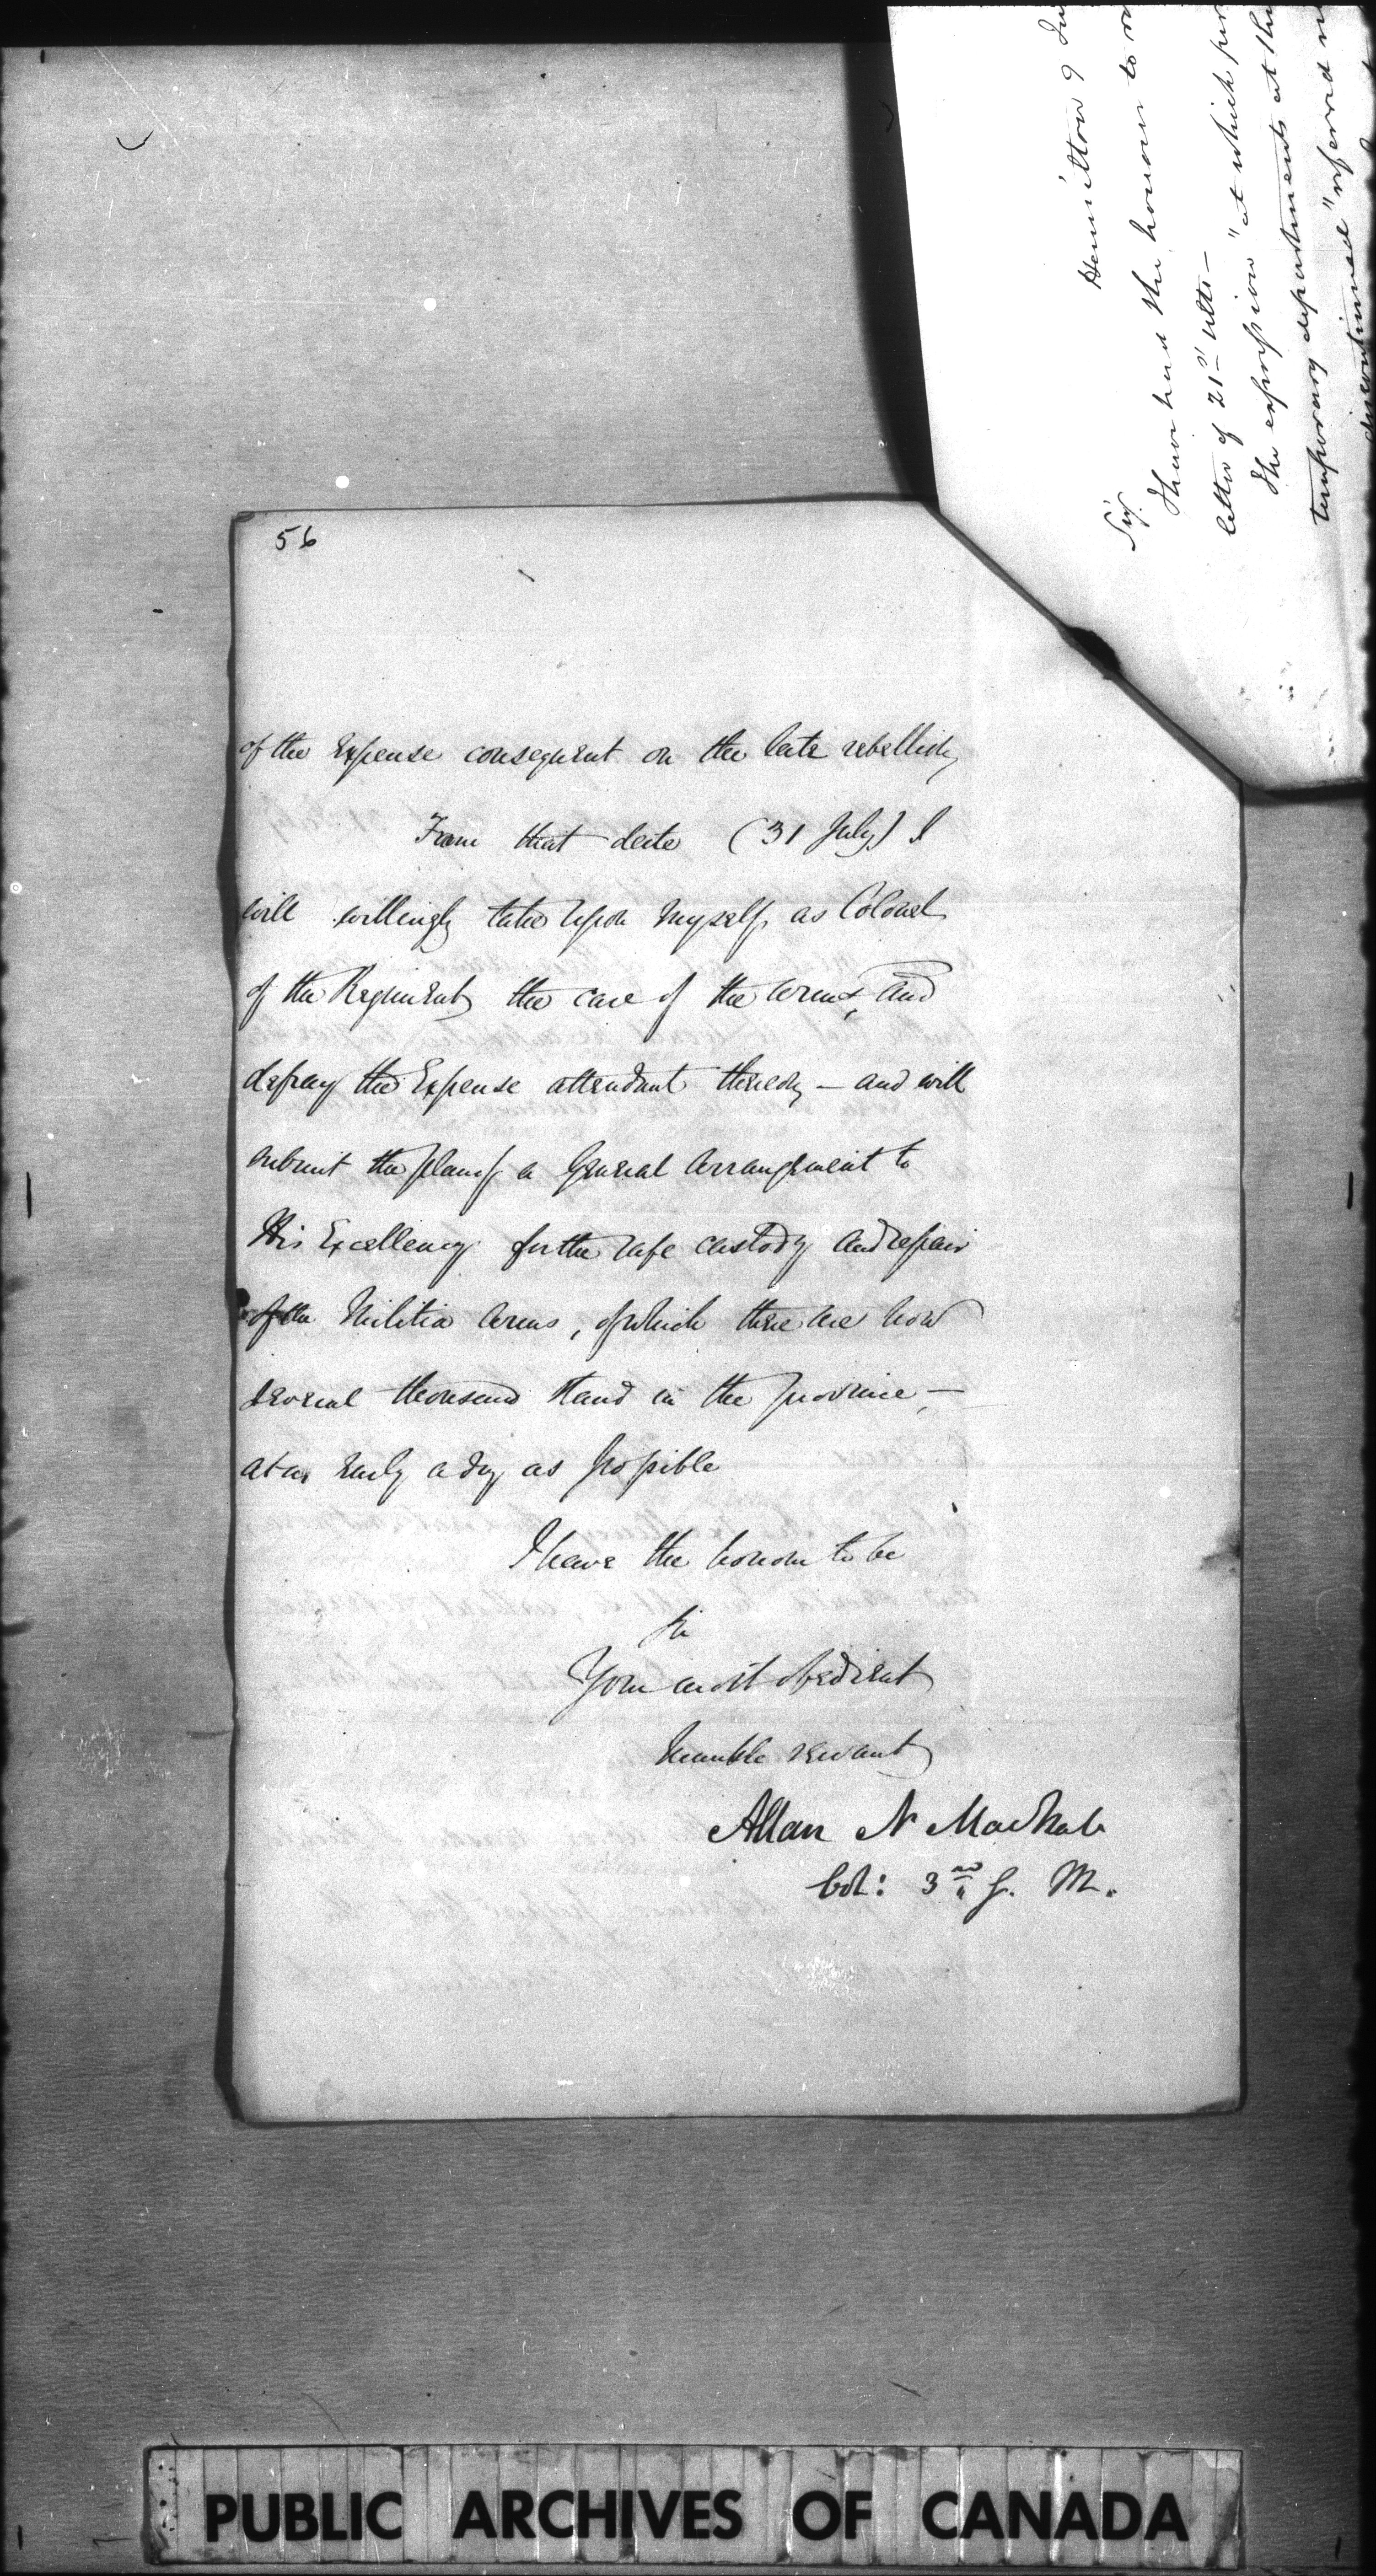 56
of the Expense consequent on the late rebellion
From that date (31 July) I
will willingly take upon myself, as Colonel
of the Regiment, the care of the arms, and
defray the Expense attendant thereon — and will
submit the plan of a General Arrangement to
His Excellency for the safe custody and repair
of the Militia Arms, of which there are now
several thousand stand in the province —
at as early a day as possible
I have the honour to be
Sir
Your most obedient
humble servant
Allan N MacNab
Col: 3rd G. M.
Hamilton 9
Sir,
I have had the honour to
letter of 21st ulto —
The expression "at which
temporary departments at
discontinued" referred
PUBLIC ARCHIVES OF CANADA